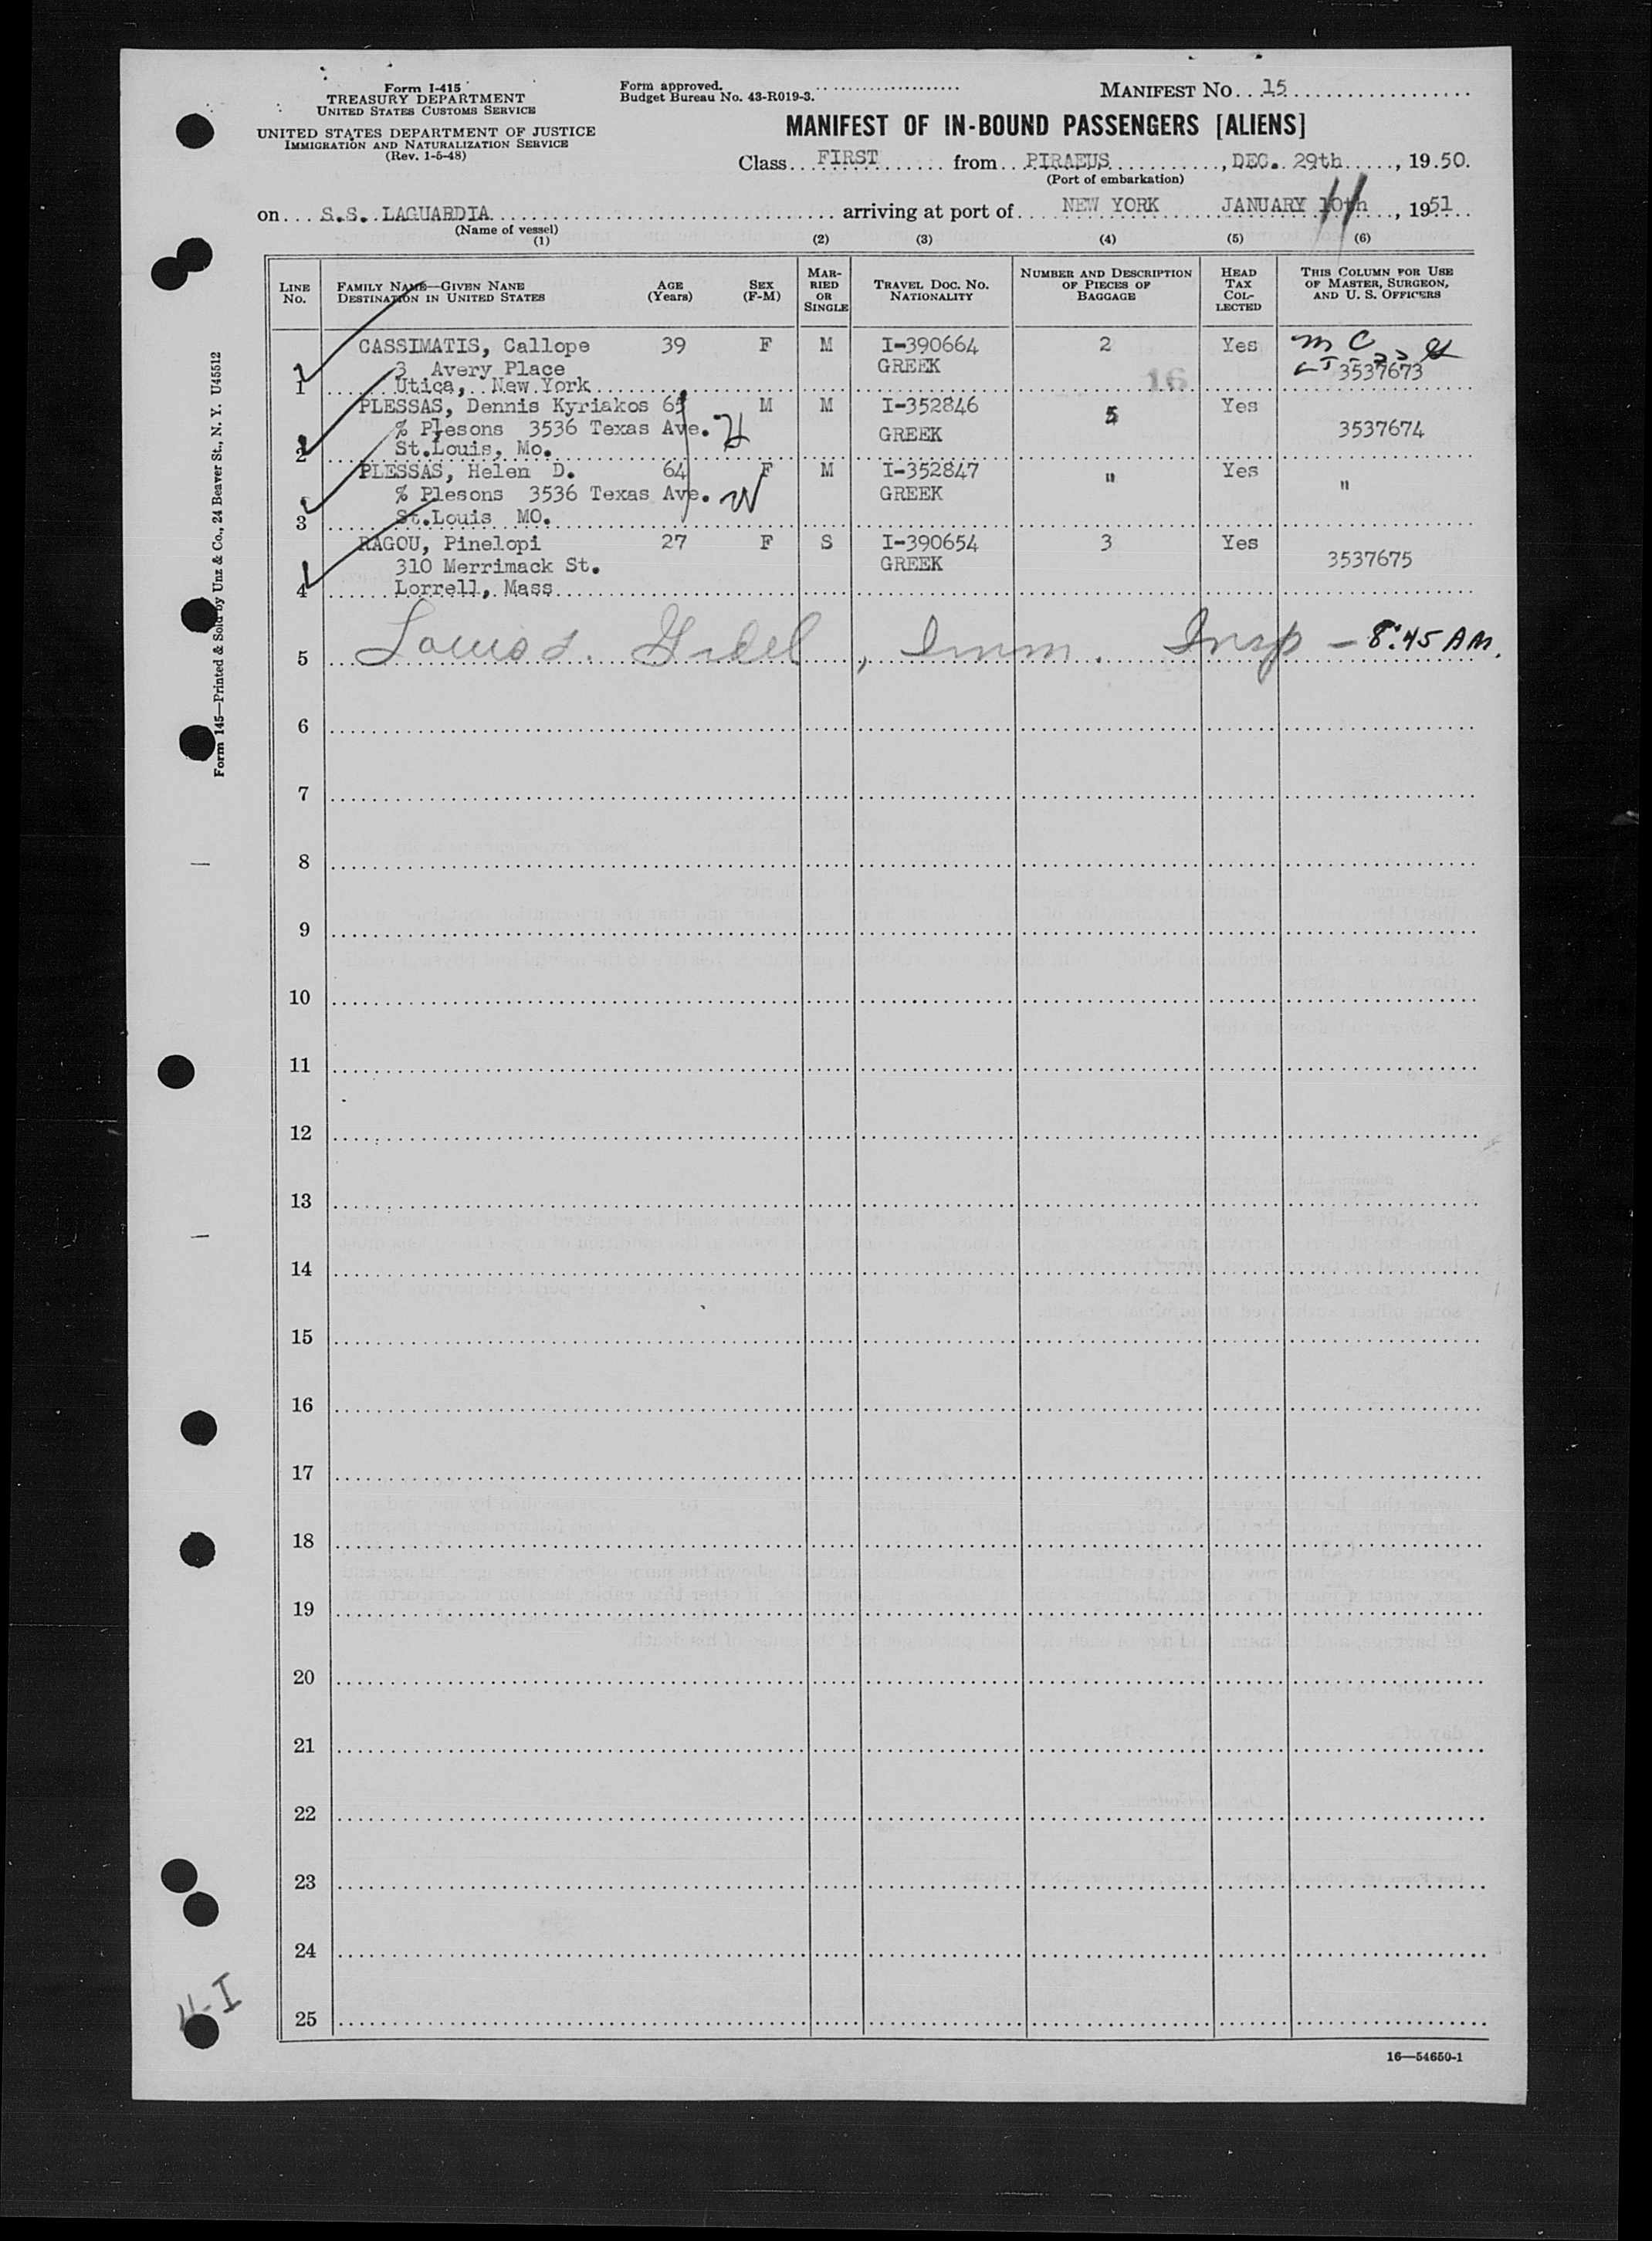 Form I-415
TREASURY DEPARTMENT
UNITED STATES CUSTOMS SERVICE
UNITED STATES DEPARTMENT OF JUSTICE
IMMIGRATION AND NATURALIZATION SERVICE
(Rev. 1-5-48)
Form approved.
Budget Bureau No. 43-R019-3.
MANIFEST NO. 15
MANIFEST OF IN-BOUND PASSENGERS [ALIENS]
Class FIRST from PIRAEUS, DEC. 29th, 1950.
(Port of embarkation)
on S.S. LAGUARDIA arriving at port of NEW YORK JANUARY 10th 11, 1951
(Name of vessel)
(1) (2) (3) (4) (5) (6)
LINE NO. FAMILY NAME—GIVEN NANE DESTINATION IN UNITED STATES AGE (Years) SEX (F-M) MARRIED OR SINGLE TRAVEL DOC. NO. NATIONALITY NUMBER AND DESCRIPTION OF PIECES OF BAGGAGE HEAD TAX COLLECTED THIS COLUMN FOR USE OF MASTER, SURGEON, AND U. S. OFFICERS
CASSIMATIS, Callope 39 F M I-390664 2 Yes m C
3 Avery Place GREEK 3537673
1 Utica, New York 16
PLESSAS, Dennis Kyriakos 65 M M I-352846 5 Yes
% Plesons 3536 Texas Ave. H GREEK 3537674
2 St.Louis, Mo.
PLESSAS, Helen D. 64 F M I-352847 " Yes
% Plesons 3536 Texas Ave. W GREEK "
3 St.Louis MO.
RAGOU, Pinelopi 27 F S I-390654 3 Yes
310 Merrimack St. GREEK 3537675
4 Lorrell, Mass
5 Louis , Imm. Insp - 8:45 AM.
6
7
8
9
10
11
12
13
14
15
16
17
18
19
20
21
22
23
24
25
16—54650-1
Form 145—Printed & Sold by Unz & Co., 24 Beaver St., N. Y. U45512